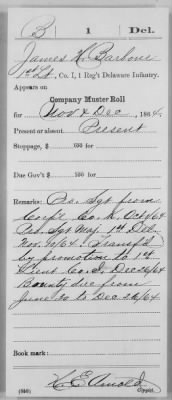 B | 1 | Del.
James H. Barbour
1st Lt, Co. I, 1 Reg't Delaware Infantry.
Appears on
Company Muster Roll
for Nov & Dec, 1864.
Present or absent Present
Stoppage, $ 100 for
Due Gov't $ 100 for
Remarks: Pro. Sgt from
Corp'l Co. K. Oct 4/64
Pro. Sgt Maj. 1st Del.
Nov. 10/64. Transf'd
by promotion to 1st
Lieut Co. I. Dec 26/64
Bounty due from
June 30 to Dec 26/64
Book mark:
H. E. Arnold
Copyist.